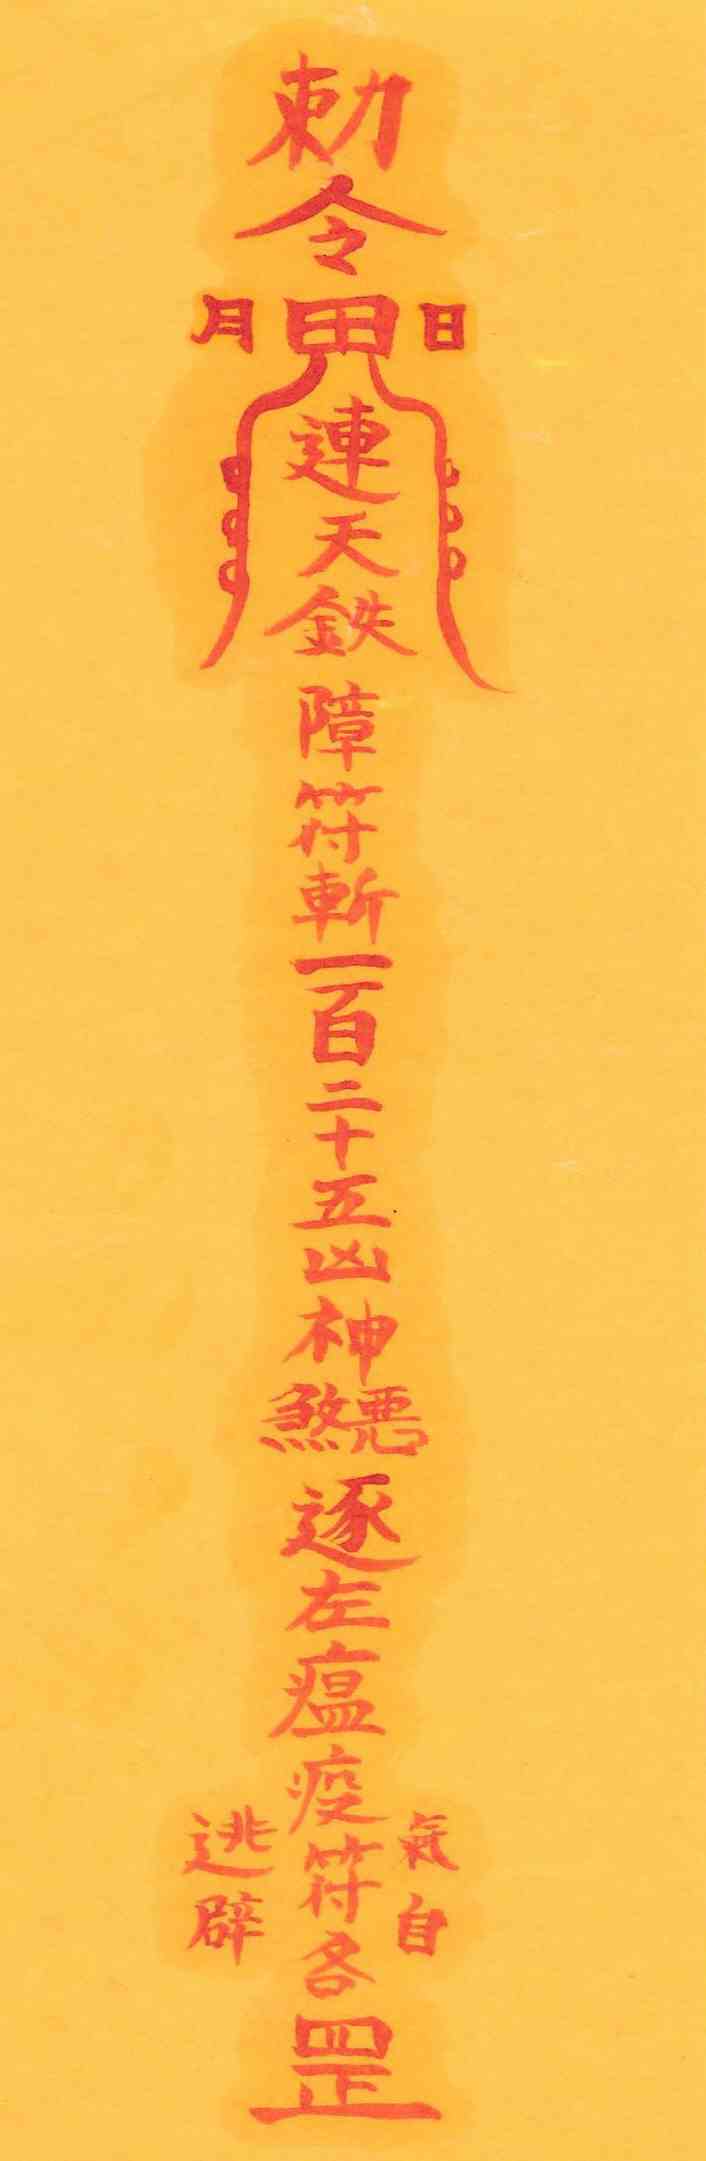 勅令
日
月
連天鉄障符斬一百二十五凶神
惡煞
逐左瘟疫符各
氣自
逃辟
罡